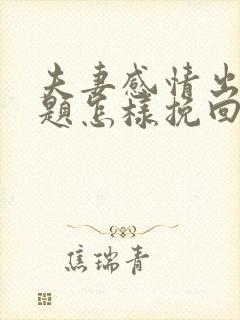 夫妻感情出
題怎樣挽回
焦瑞青